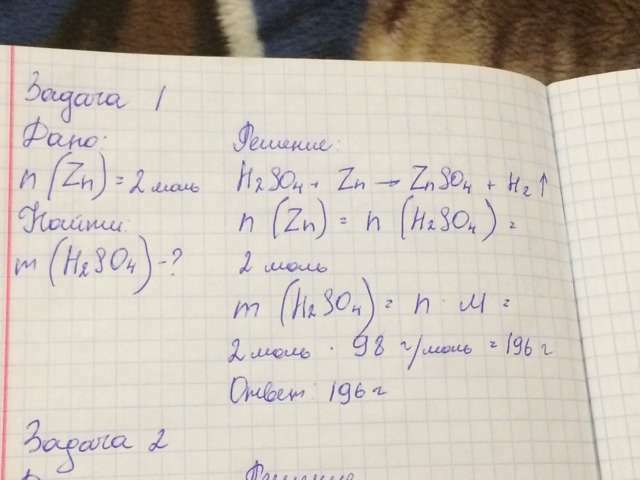 Задача 1
Дано:
n (Zn) = 2 моль
Найти:
m (H₂SO₄) - ?
Решение:
H₂SO₄ + Zn → ZnSO₄ + H₂↑
n (Zn) = n (H₂SO₄) =
2 моль
m (H₂SO₄) = n · M =
2 моль · 98 г/моль = 196 г
Ответ: 196 г
Задача 2
Решение